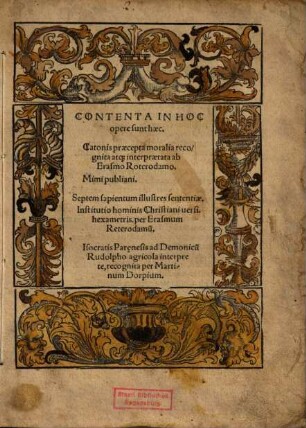 CONTENTA IN HOC
opere sunt hæc.
Catonis præcepta moralia reco/
gnita atq; interprætata ab
Erasmo Roterodamo.
Mimi publiani.
Septem sapientum illustres sententiæ.
Institutio hominis Christiani uersi.
hexametris. per Erasmum
Roterodamũ.
Isocratis Parenesis ad Demonicũ
Rudolpho agricola interpre
te, recognita per Marti-
num Dorpium.
Staatl. Bibliothek
Regensburg